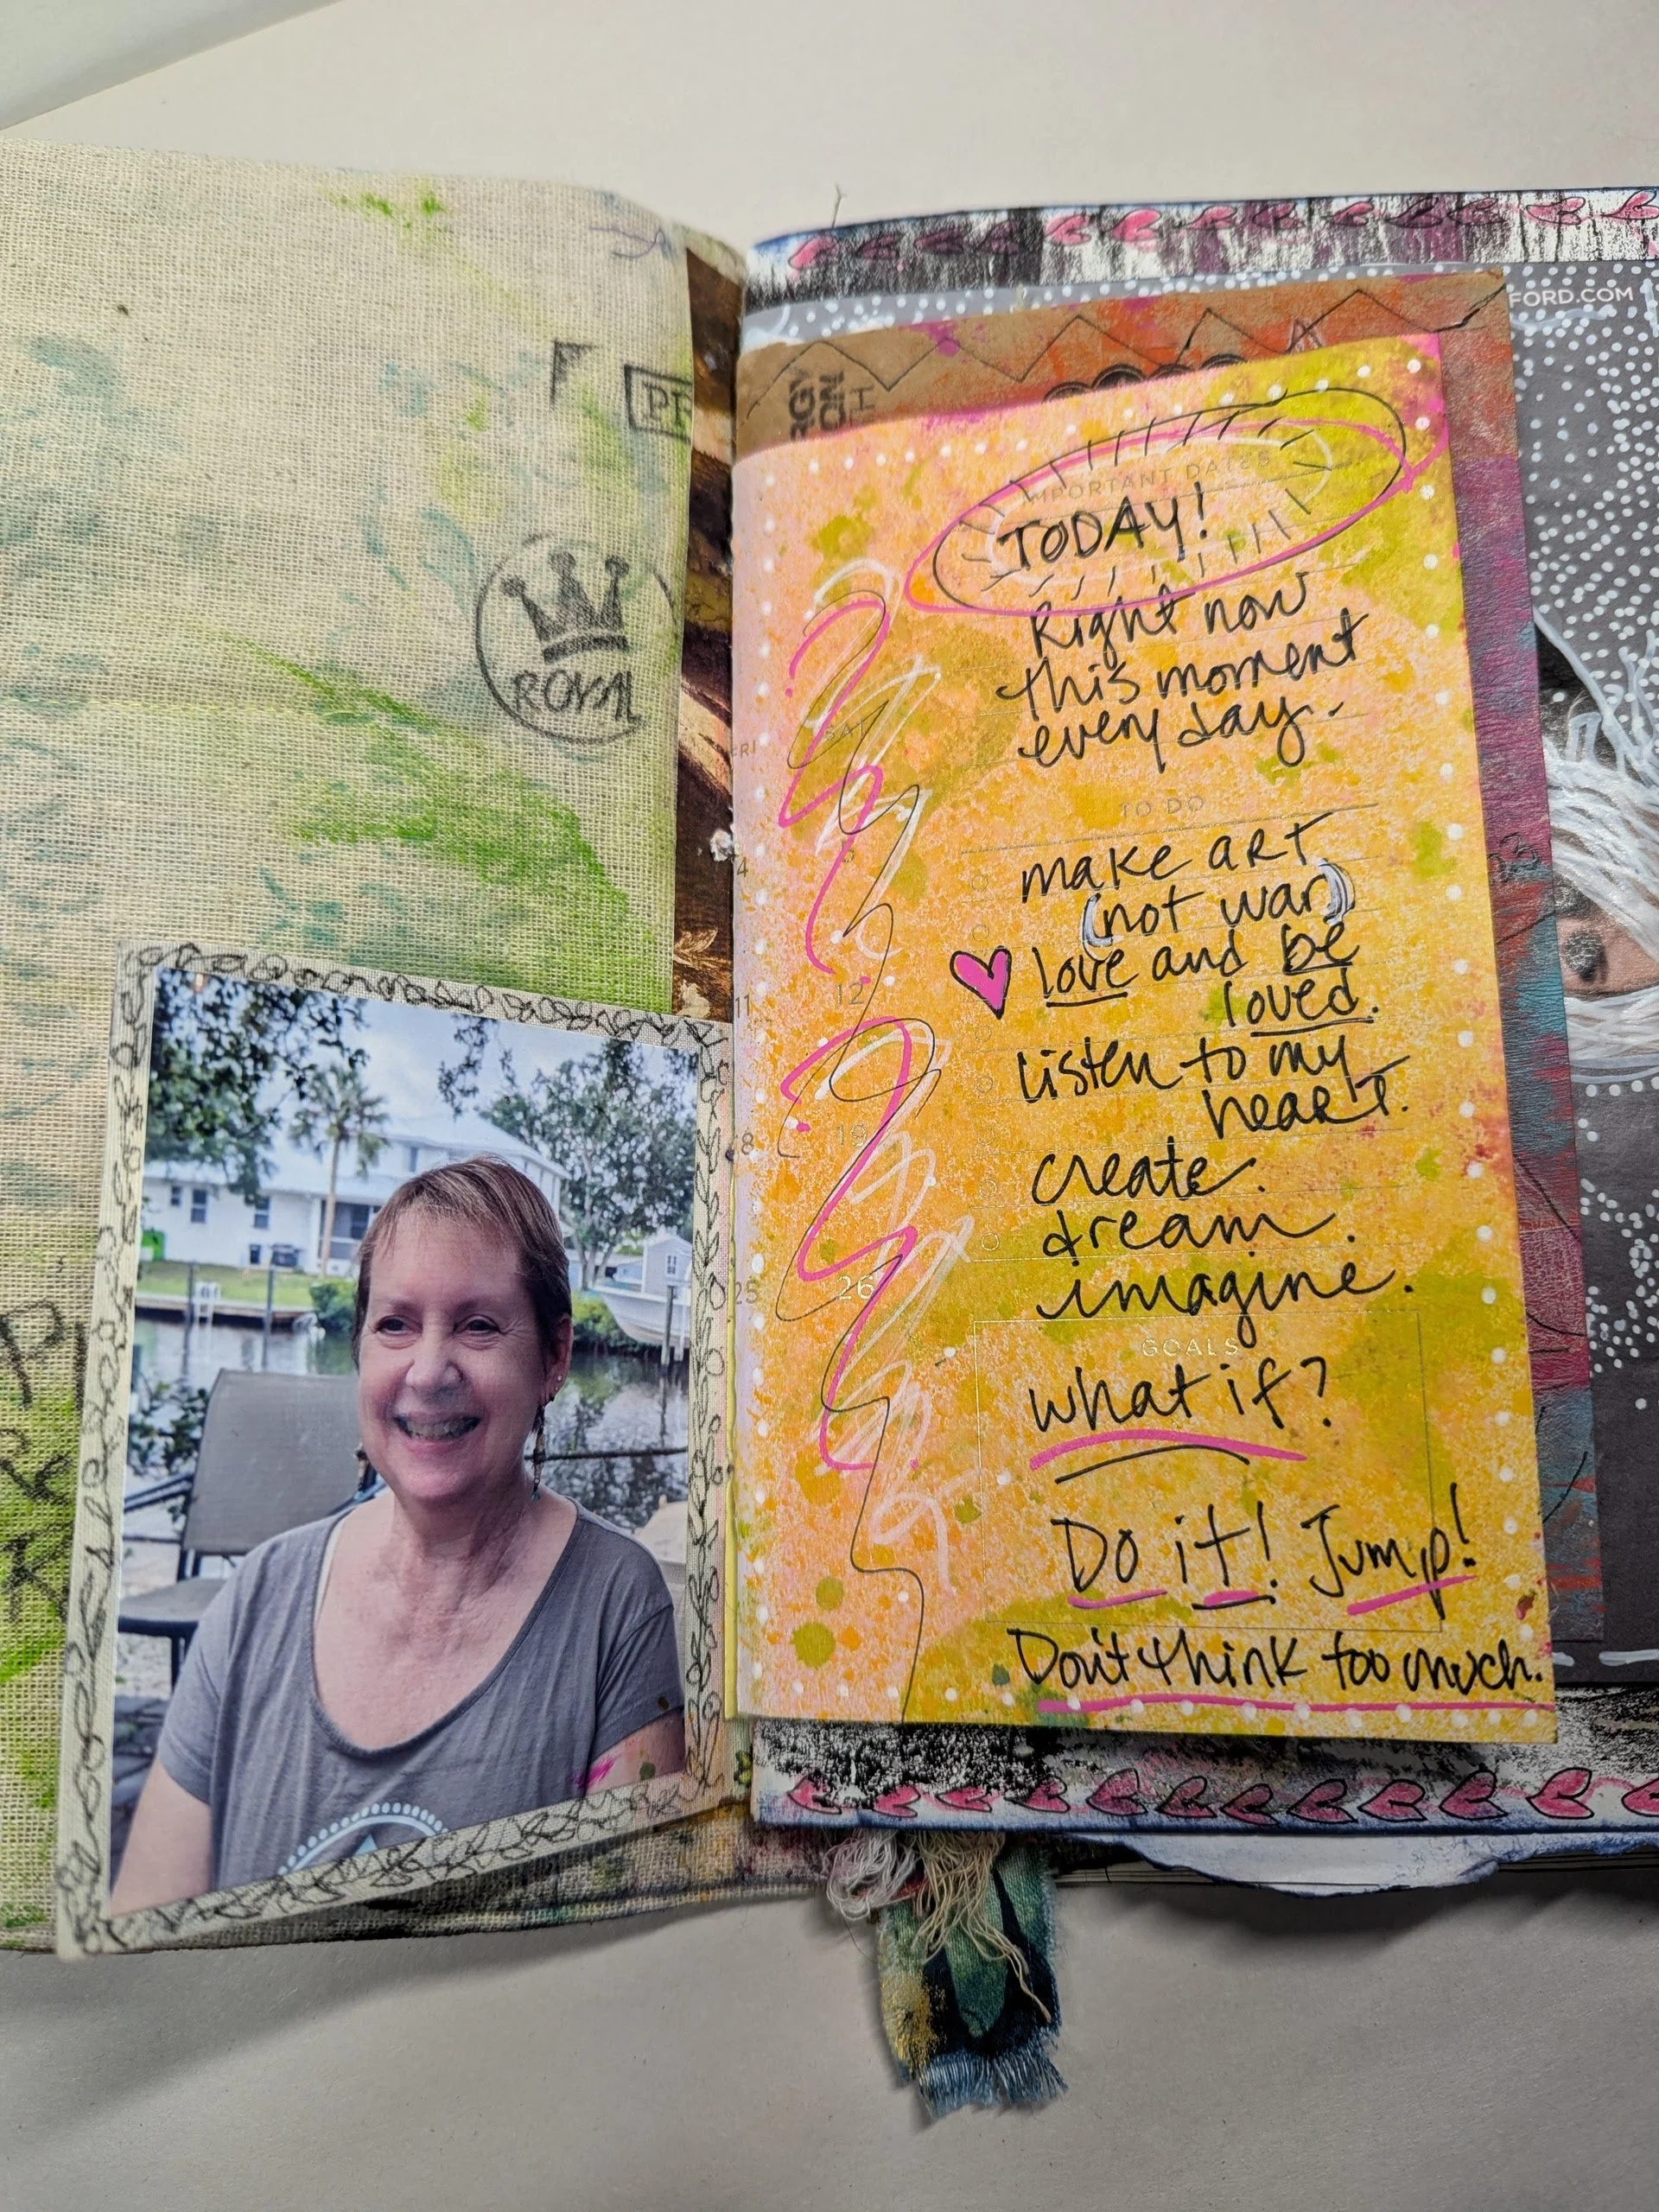 ROYAL
FORD.COM
IMPORTANT DATES
TODAY!
Right now
this moment
every day.
FRI SAT
TO DO
make art
(not war)
love and be
loved.
listen to my
heart.
create.
dream.
imagine.
GOALS
what if?
Do it! Jump!
Don't think too much.
4 5
11 12
18 19
25 26